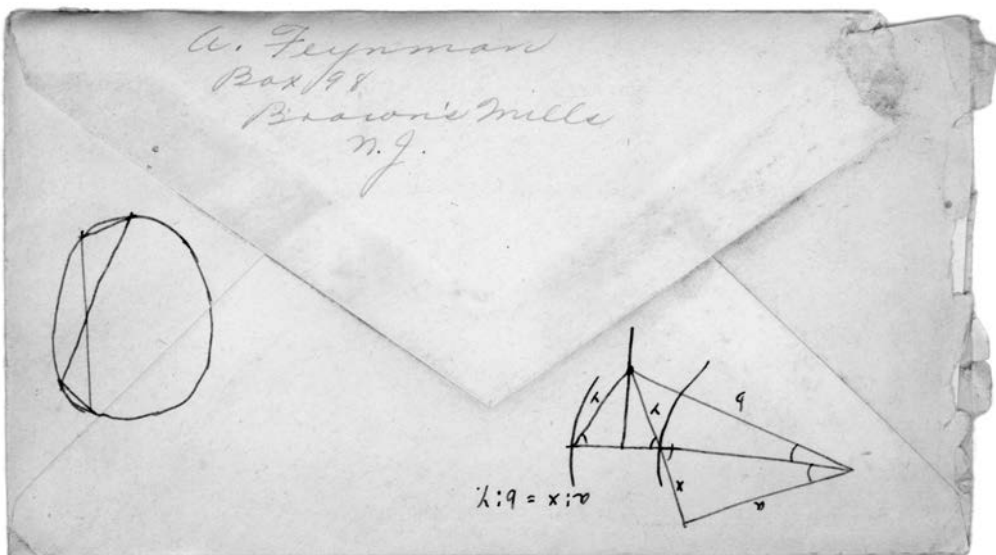 A. Feynman
Box 98
Brown's Mills
N.J.
y
y
b
x
a
a:x = b:y.